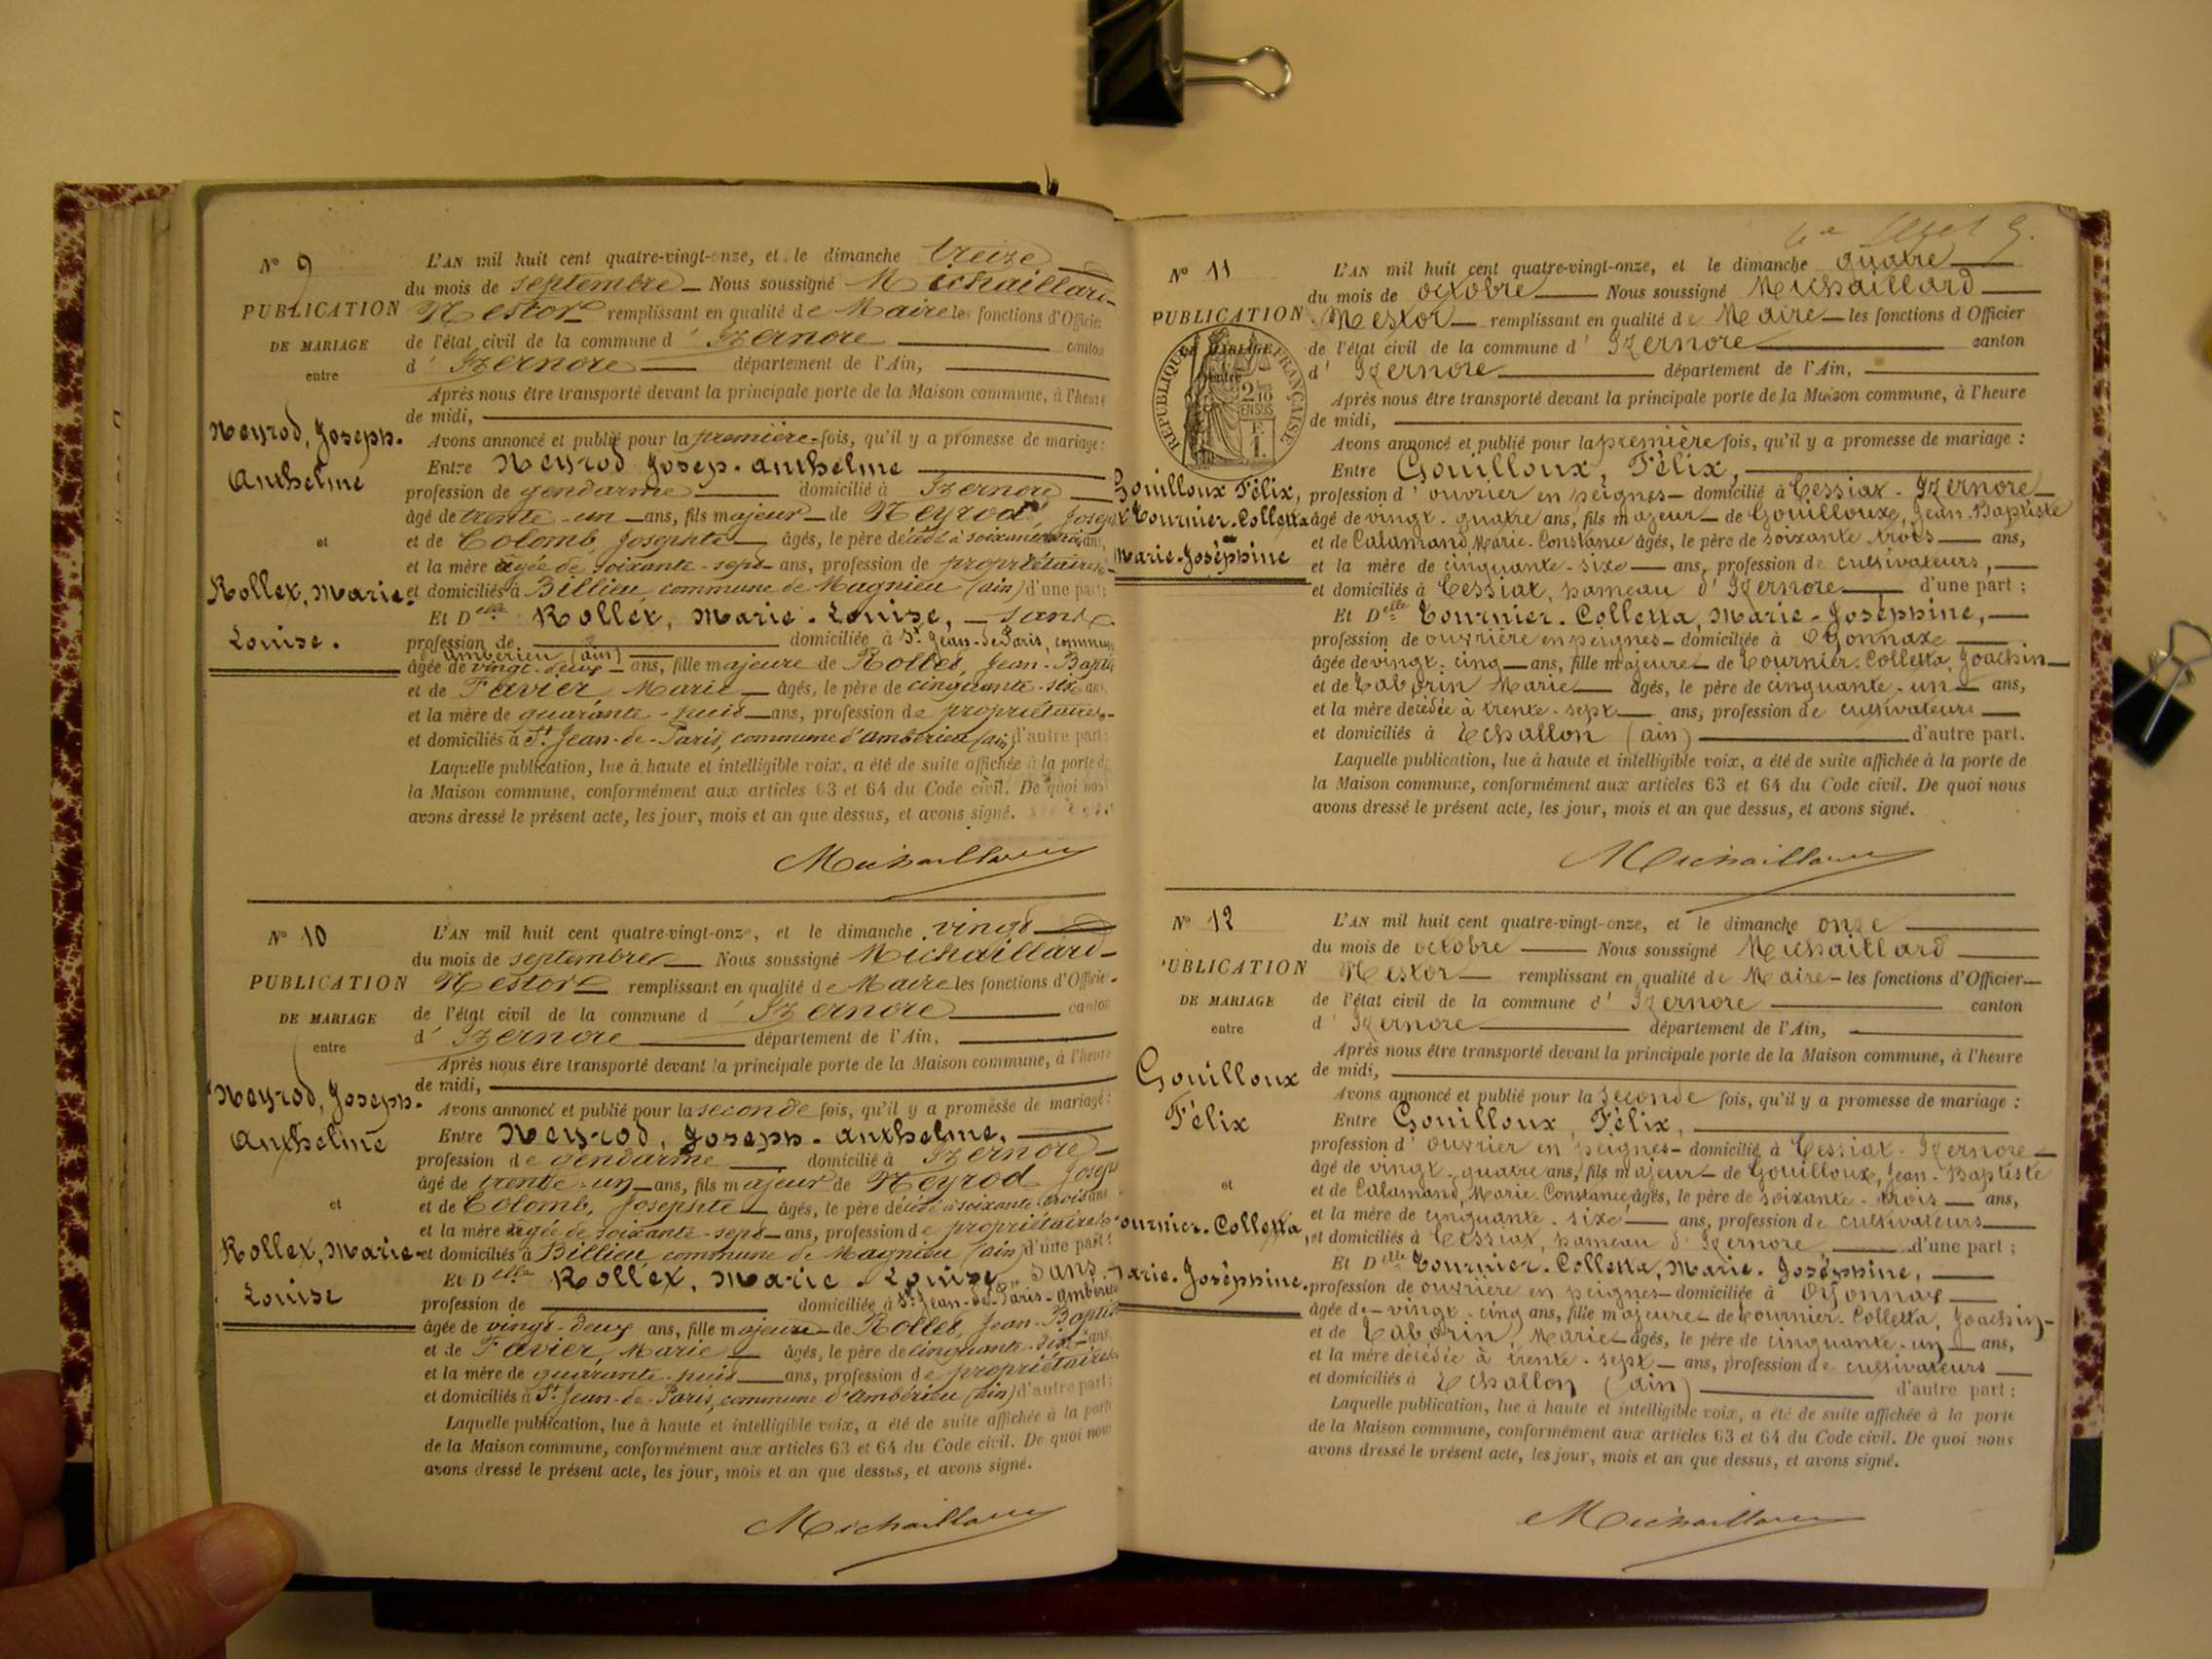 Nº 9
PUBLICATION
DE MARIAGE
entre
Neyrod, Joseph.
Anthelme
et
Rollet, Marie.
Louise.
L'AN mil huit cent quatre-vingt-onze, et le dimanche treize
du mois de septembre Nous soussigné Michaillard
Nestor remplissant en qualité de Maire les fonctions d'Officier
de l'état civil de la commune d'Izernore canton
d'Izernore département de l'Ain,
Après nous être transporté devant la principale porte de la Maison commune, à l'heure
de midi,
Avons annoncé et publié pour la première fois, qu'il y a promesse de mariage :
Entre Neyrod Josep. anthelme
profession de gendarme domicilié à Izernore
âgé de trente-un ans, fils majeur de Neyrod Joseph
et de Colomb Josephte âgés, le père décédé à soixante trois ans,
et la mère âgée de soixante-sept ans, profession de propriétaires
et domiciliés à Billieu commune de Magnieu (ain) d'une part ;
Et Delle Rollet, Marie. Louise, sans
profession de domiciliée à St Jean-de-Paris, commune
d'Ambérieu (ain)
âgée de vingt-deux ans, fille majeure de Rollet, Jean-Baptis
et de Favier, Marie âgés, le père de cinquante-six ans
et la mère de quarante-huit ans, profession de propriétaires
et domiciliés à St Jean-de-Paris, commune d'ambérieu (ain) d'autre part ;
Laquelle publication, lue à haute et intelligible voix, a été de suite affichée à la porte de
la Maison commune, conformément aux articles 63 et 64 du Code civil. De quoi nous
avons dressé le présent acte, les jour, mois et an que dessus, et avons signé.
Michaillard
Nº 10
PUBLICATION
DE MARIAGE
entre
Neyrod, Joseph.
Anthelme
et
Rollet, Marie
Louise
L'AN mil huit cent quatre-vingt-onze, et le dimanche vingt
du mois de septembre Nous soussigné Michaillard
Nestor remplissant en qualité de Maire les fonctions d'Officier
de l'état civil de la commune d'Izernore canton
d'Izernore département de l'Ain,
Après nous être transporté devant la principale porte de la Maison commune, à l'heure
de midi,
Avons annoncé et publié pour la seconde fois, qu'il y a promesse de mariage :
Entre Neyrod, Joseph. anthelme,
profession de gendarme domicilié à Izernore
âgé de trente-un ans, fils majeur de Neyrod Joseph
et de Colomb, Josephte âgés, le père décédé à soixante trois ans
et la mère âgée de soixante-sept ans, profession de propriétaires
et domiciliés à Billieu commune de Magnieu (ain) d'une part ;
Et Delle Rollet, Marie. Louise sans
profession de domiciliée à St Jean-de-Paris-ambérieu
âgée de vingt-deux ans, fille majeure de Rollet, Jean-Baptis
et de Favier, Marie âgés, le père de cinquante-six ans
et la mère de quarante-huit ans, profession de propriétaires
et domiciliés à St Jean-de-Paris, commune d'Ambérieu (ain) d'autre part ;
Laquelle publication, lue à haute et intelligible voix, a été de suite affichée à la porte
de la Maison commune, conformément aux articles 63 et 64 du Code civil. De quoi nous
avons dressé le présent acte, les jour, mois et an que dessus, et avons signé.
Michaillard
Nº 11
PUBLICATION
DE MARIAGE
entre
RÉPUBLIQUE FRANÇAISE
2/10
EN SUS
F.
1.
Gouilloux Félix,
et Tournier-Colletta
Marie-Joséphine
L'AN mil huit cent quatre-vingt-onze, et le dimanche quatre
du mois de octobre Nous soussigné Michaillard
Nestor remplissant en qualité de Maire les fonctions d'Officier
de l'état civil de la commune d'Izernore canton
d'Izernore département de l'Ain,
Après nous être transporté devant la principale porte de la Maison commune, à l'heure
de midi,
Avons annoncé et publié pour la première fois, qu'il y a promesse de mariage :
Entre Gouilloux, Félix,
profession d'ouvrier en peignes domicilié à Cessiat-Izernore
âgé de vingt-quatre ans, fils majeur de Gouilloux, Jean-Baptiste
et de Calamand, Marie-Constance âgés, le père de soixante trois ans,
et la mère de cinquante-six ans, profession de cultivateurs,
et domiciliés à Cessiat, hameau d'Izernore d'une part ;
Et Delle Tournier-Colletta, Marie-Joséphine,
profession de ouvrière en peignes domiciliée à Oyonnax
âgée de vingt-cinq ans, fille majeure de Tournier-Colletta, Joachin
et de Taborin Marie âgés, le père de cinquante-un ans,
et la mère décédée à trente-sept ans, profession de cultivateurs
et domiciliés à Echallon (ain) d'autre part.
Laquelle publication, lue à haute et intelligible voix, a été de suite affichée à la porte de
la Maison commune, conformément aux articles 63 et 64 du Code civil. De quoi nous
avons dressé le présent acte, les jour, mois et an que dessus, et avons signé.
Michaillard
Nº 12
PUBLICATION
DE MARIAGE
entre
Gouilloux
Félix
et
Tournier-Colletta,
Marie-Joséphine.
L'AN mil huit cent quatre-vingt-onze, et le dimanche onze
du mois de octobre Nous soussigné Michaillard
Nestor remplissant en qualité de Maire les fonctions d'Officier
de l'état civil de la commune d'Izernore canton
d'Izernore département de l'Ain,
Après nous être transporté devant la principale porte de la Maison commune, à l'heure
de midi,
Avons annoncé et publié pour la seconde fois, qu'il y a promesse de mariage :
Entre Gouilloux, Félix,
profession d'ouvrier en peignes domicilié à Cessiat-Izernore
âgé de vingt-quatre ans, fils majeur de Gouilloux, Jean-Baptiste
et de Calamand, Marie-Constance âgés, le père de soixante-trois ans,
et la mère de cinquante-six ans, profession de cultivateurs
et domiciliés à Cessiat, hameau d'Izernore d'une part ;
Et Delle Tournier-Colletta, Marie-Joséphine,
profession de ouvrière en peignes domiciliée à Oyonnax
âgée de vingt-cinq ans, fille majeure de Tournier-Colletta, Joachin
et de Taborin, Marie âgés, le père de cinquante-un ans,
et la mère décédée à trente-sept ans, profession de cultivateurs
et domiciliés à Echallon (ain) d'autre part ;
Laquelle publication, lue à haute et intelligible voix, a été de suite affichée à la porte
de la Maison commune, conformément aux articles 63 et 64 du Code civil. De quoi nous
avons dressé le présent acte, les jour, mois et an que dessus, et avons signé.
Michaillard